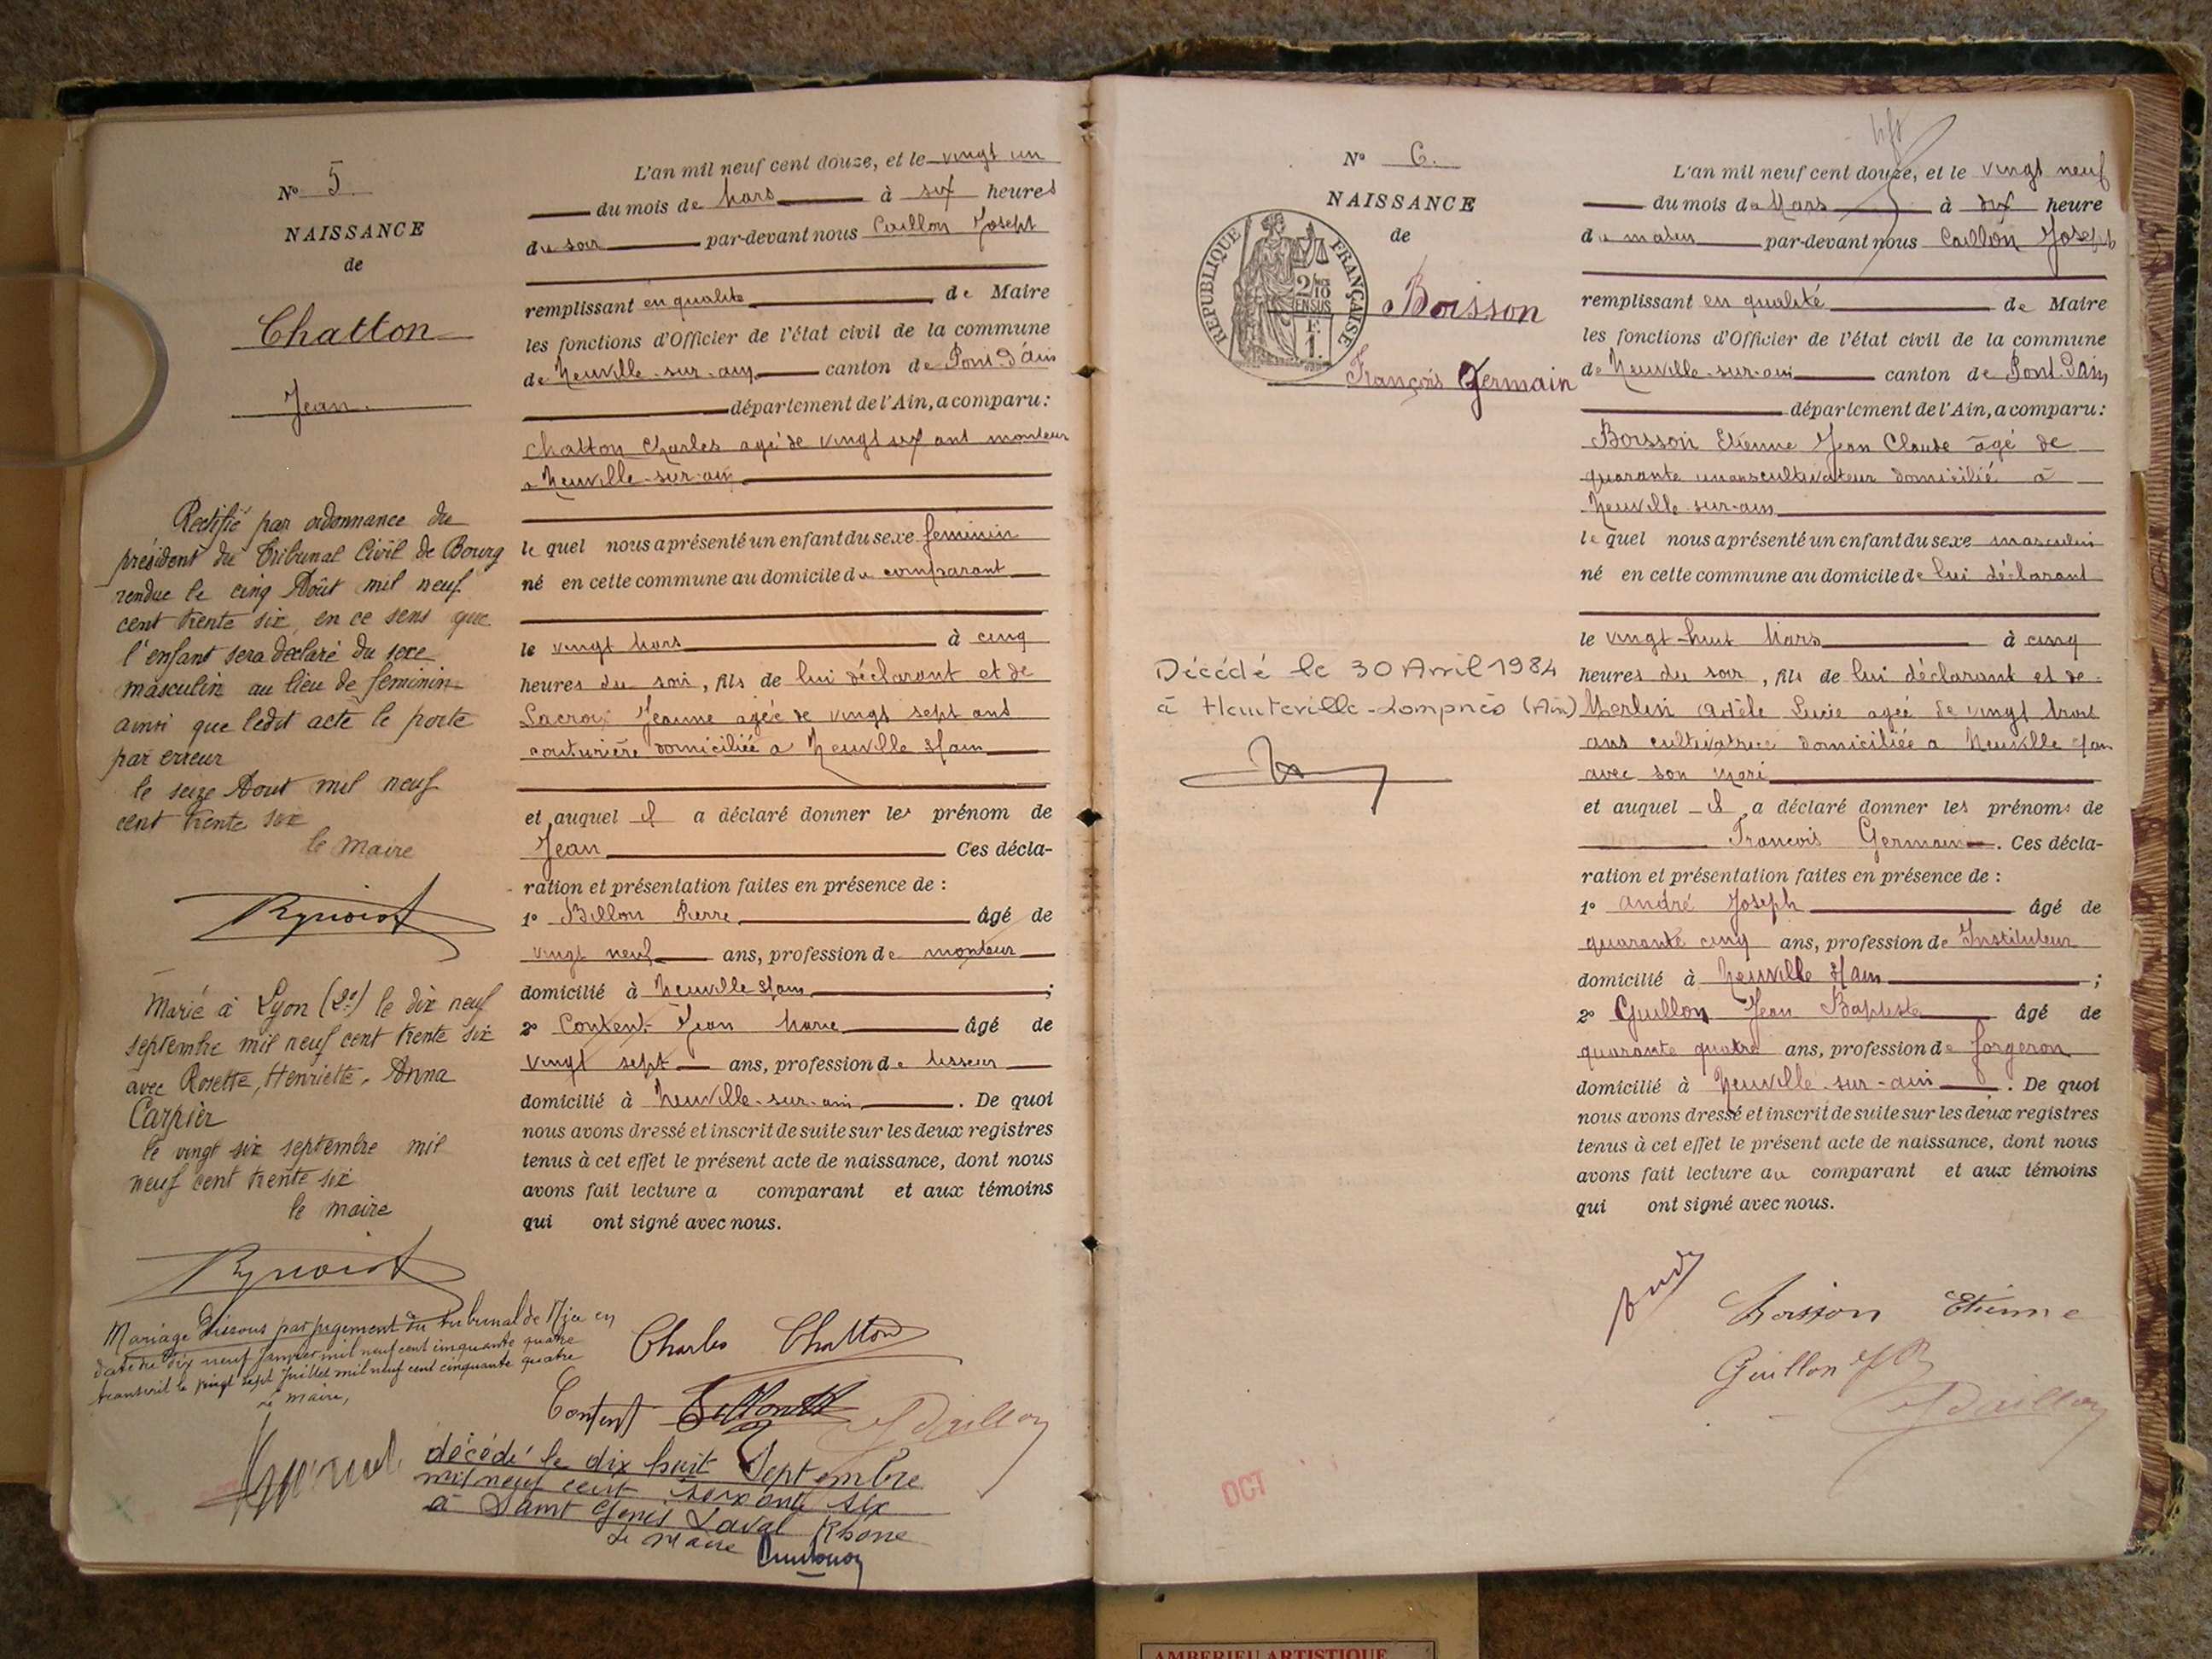 N° 5.
NAISSANCE
de
Chatton
Jean.
Rectifié par ordonnance du
président du Tribunal Civil de Bourg
rendue le cinq Août mil neuf
cent trente six, en ce sens que
l'enfant sera déclaré du sexe
masculin au lieu de féminin
ainsi que ledit acte le porte
par erreur
le seize Aout mil neuf
cent trente six
le maire
Marié à Lyon (2e) le dix neuf
septembre mil neuf cent trente six
avec Rosette, Henriette, Anna
Carpier
le vingt six septembre mil
neuf cent trente six
le maire
Mariage dissous par jugement du tribunal de en
date du dix neuf janvier mil neuf cent cinquante quatre
transcrit le vingt sept Juillet mil neuf cent cinquante quatre
Le maire,
L'an mil neuf cent douze, et le vingt un
du mois de Mars à six heures
du soir par-devant nous Caillon Joseph
remplissant en qualité de Maire
les fonctions d'Officier de l'état civil de la commune
de Neuville-sur-ain canton de Pont-d'Ain
département de l'Ain, a comparu :
Chatton Charles agé de vingt six ans monteur
a Neuville-sur-ain
le quel nous a présenté un enfant du sexe féminin
né en cette commune au domicile du comparant
le vingt Mars à cinq
heures du soir, fils de lui déclarant et de
Lacroix Jeanne agée de vingt sept ans
couturière domiciliée a Neuville s/ain
et auquel il a déclaré donner les prénom de
Jean Ces décla-
ration et présentation faites en présence de :
1° Billon Pierre âgé de
vingt neuf ans, profession de monteur
domicilié à Neuville s/ain ;
2° Content Jean Marie âgé de
vingt sept ans, profession de tisseur
domicilié à Neuville-sur-ain . De quoi
nous avons dressé et inscrit de suite sur les deux registres
tenus à cet effet le présent acte de naissance, dont nous
avons fait lecture a comparant et aux témoins
qui ont signé avec nous.
Charles Chatton
Content Billon
décédé le dix huit Septembre
mil neuf cent soixante six
à Saint Genis Laval Rhône
Le Maire
N° 6.
NAISSANCE
de
REPUBLIQUE FRANÇAISE
2/10 EN SUS
F. 1.
Boisson
François Germain
Décédé le 30 Avril 1984
à Hauteville-Lompnès (Ain)
L'an mil neuf cent douze, et le vingt neuf
du mois de Mars à dix heure
du matin par-devant nous Caillon Joseph
remplissant en qualité de Maire
les fonctions d'Officier de l'état civil de la commune
de Neuville-sur-ain canton de Pont-d'Ain
département de l'Ain, a comparu :
Boisson Etienne Jean Claude âgé de
quarante un ans cultivateur domicilié à
Neuville-sur-ain
le quel nous a présenté un enfant du sexe masculin
né en cette commune au domicile de lui déclarant
le vingt-huit Mars à cinq
heures du soir, fils de lui déclarant et de
Merlin Adèle Lucie agée de vingt trois
ans cultivatrice domiciliée a Neuville s/ain
avec son mari
et auquel il a déclaré donner les prénoms de
François Germain . Ces décla-
ration et présentation faites en présence de :
1° André Joseph âgé de
quarante cinq ans, profession de Instituteur
domicilié à Neuville s/ain ;
2° Guillon Jean Baptiste âgé de
quarante quatre ans, profession de forgeron
domicilié à Neuville-sur-ain . De quoi
nous avons dressé et inscrit de suite sur les deux registres
tenus à cet effet le présent acte de naissance, dont nous
avons fait lecture au comparant et aux témoins
qui ont signé avec nous.
Boisson Etienne
Guillon JB
OCT
AMBERIEU ARTISTIQUE